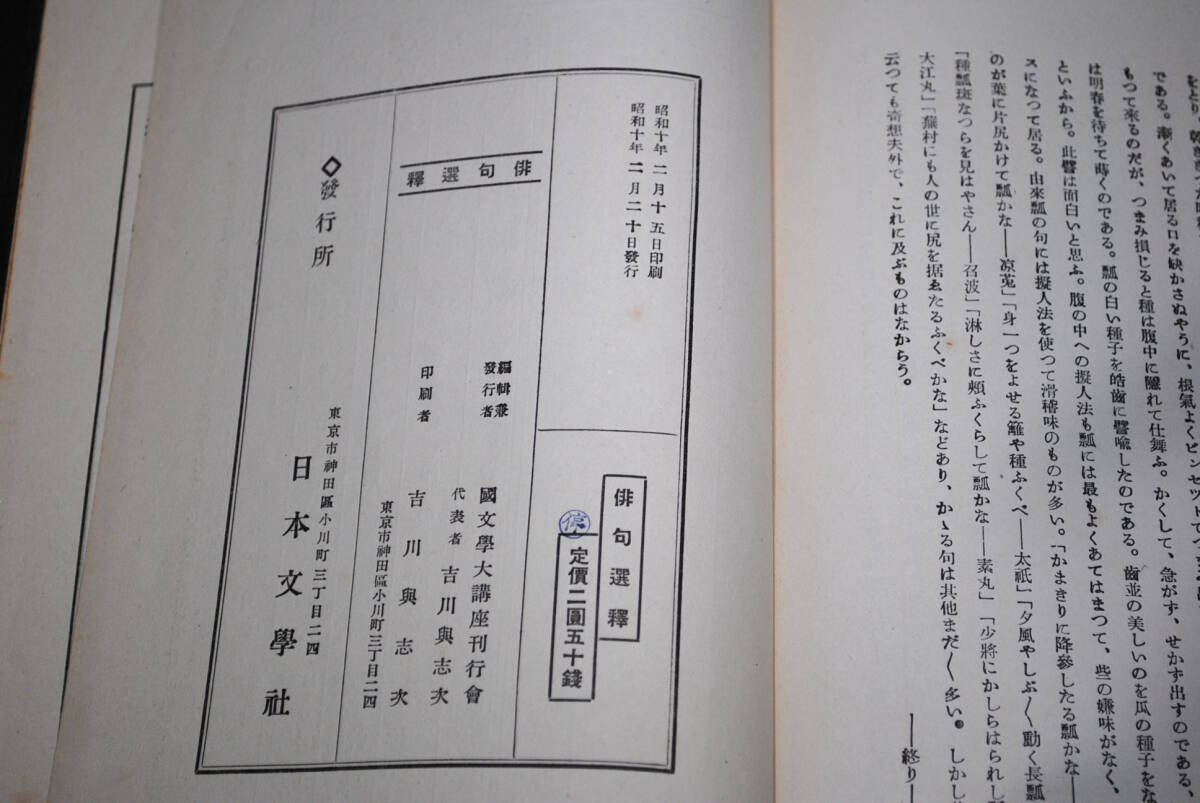 をとり
である。漸くあいて居る口を缺かさぬやうに、根氣よくピンセツト
もつて來るのだが、つまみ損じると種は腹中に隱れて仕舞ふ。かくして、急がず、せかず出すのである、
は明春を待ちて蒔くのである。瓢の白い種子を皓齒に譬喩したのである。齒並の美しいのを瓜の種子をな
といふから。此譬は面白いと思ふ。腹の中への擬人法も瓢には最もよくあてはまつて、些の嫌味がなく、
スになつて居る。由來瓢の句には擬人法を使つて滑稽味のものが多い。「かまきりに降參したる瓢かな—
のが葉に片尻かけて瓢かな——凉莵」「身一つをよせる籬や種ふくべ——太祇」「夕風やしぶ〱動く長瓢
「種瓢斑なつらを見はやさん——召波」「淋しさに頰ふくらして瓢かな——素丸」「少將にかしらはられし
大江丸」「蕪村にも人の世に尻を据ゑたるふくべかな」などあり、かゝる句は其他まだ〱多い。しかし
云つても奇想天外で、これに及ぶものはなからう。
——終り—
昭和十年二月十五日印刷
昭和十年二月二十日發行
俳句選釋
停
定價二圓五十錢
俳句選釋
編輯兼
發行者
國文學大講座刊行會
代表者 吉川與志次
印刷者
吉川與志次
東京市神田區小川町三丁目二四
◇發行所
東京市神田區小川町三丁目二四
日本文學社